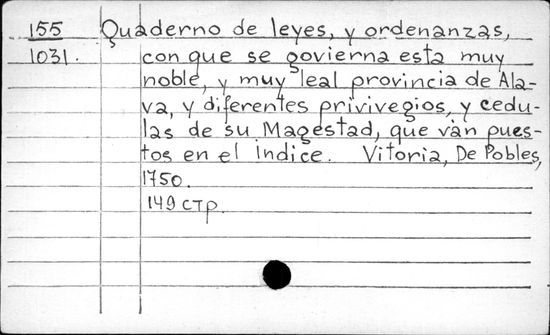 155 Quaderno de leyes, y ordenanzas,
1031. con que se govierna esta muy
noble, y muy leal provincia de Ala-
va, y diferentes privivegios, y cedu-
las de su Magestad, que ván pues-
tos en el indice. Vitoria, De Pobles,
1750.
149 стр.